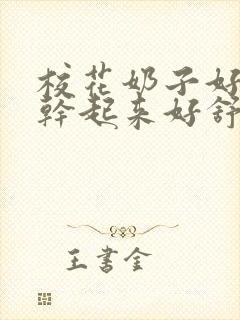 校花奶子好
幹起来好舒
王書金